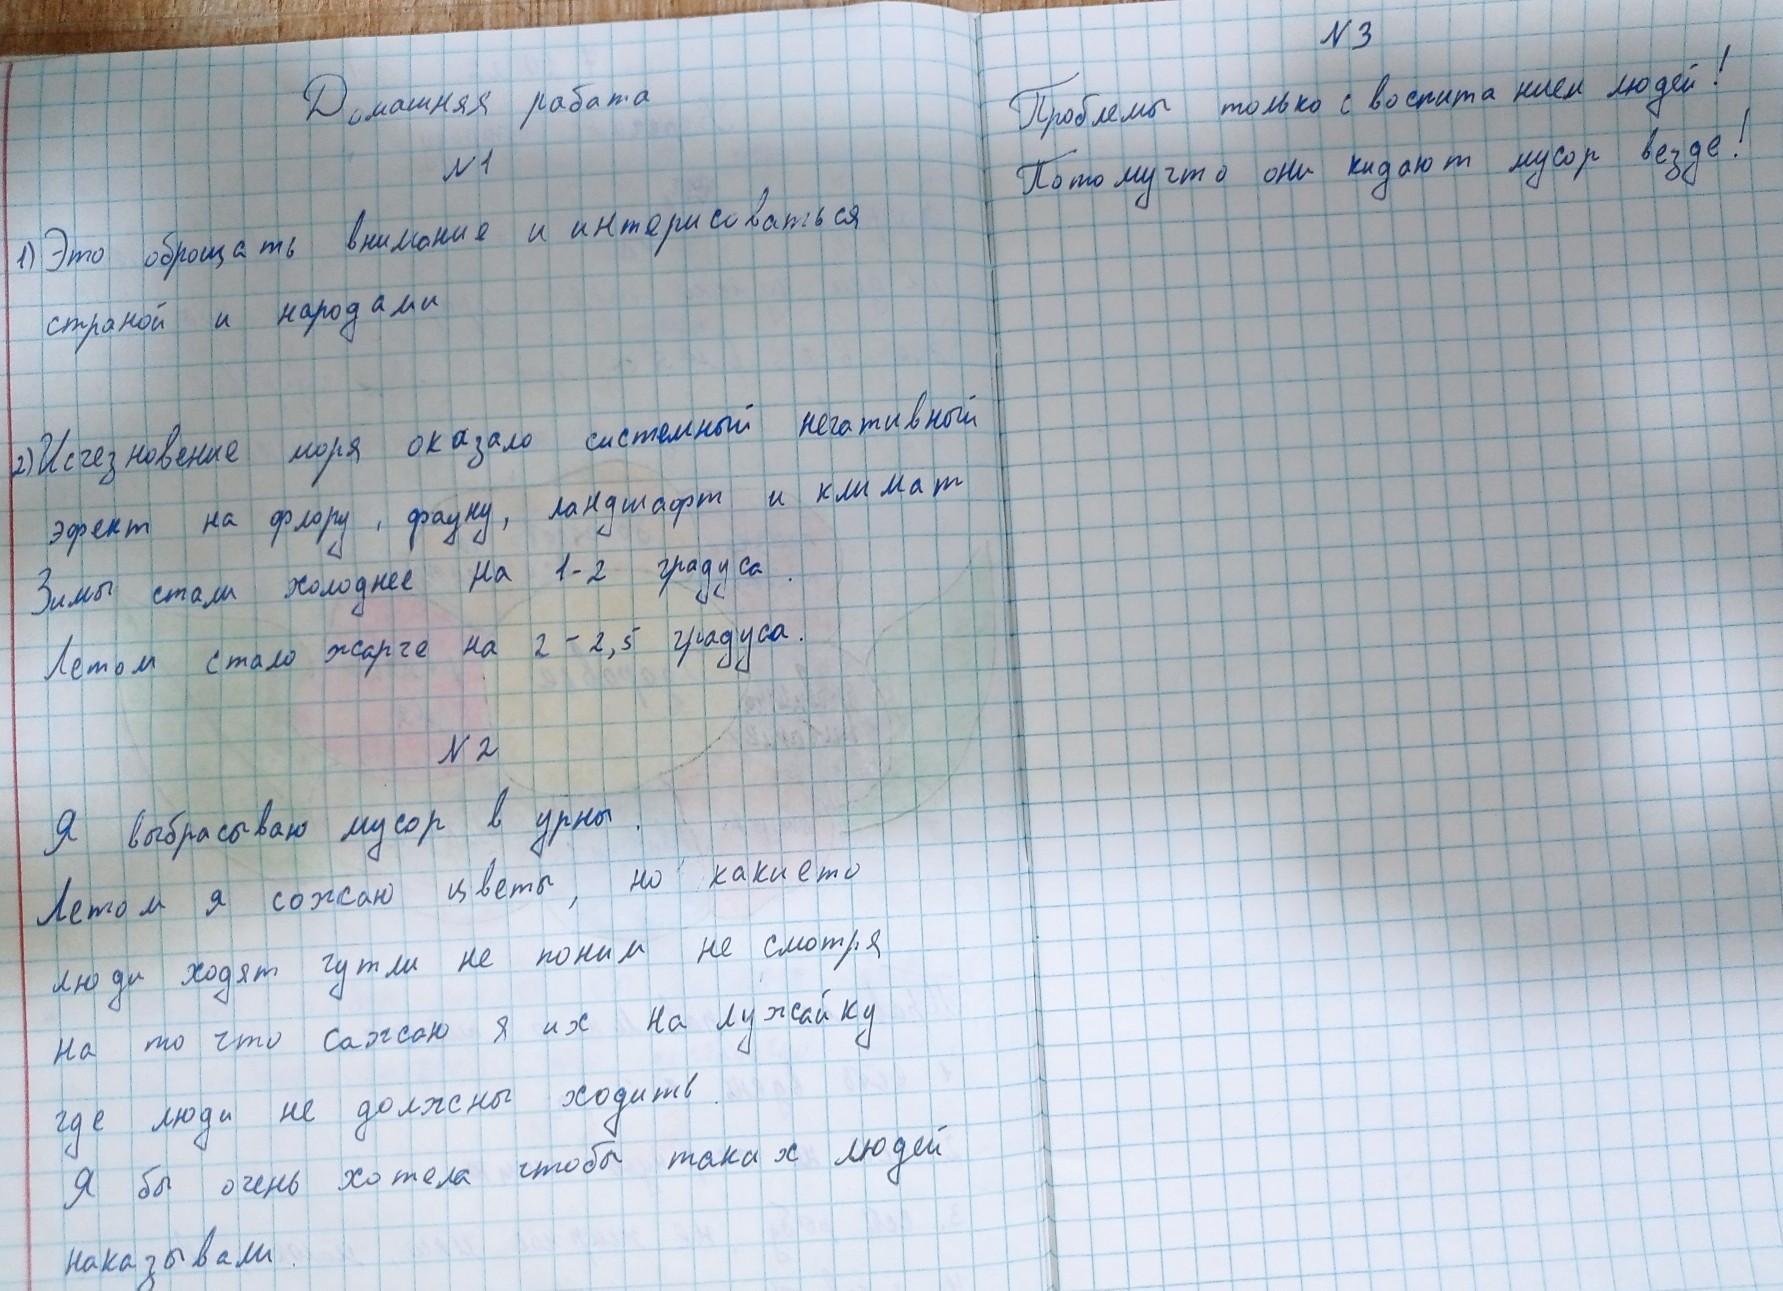 Домашняя работа
N1
1) Это оброщать внимание и интерисоваться
страной и народами
2) Исчезновение моря оказало системный негативный
эфект на флору, фауну, ландшафт и климат
Зимы стали холоднее на 1-2 градуса.
Летом стало жарче на 2-2,5 градуса.
N2
Я выбрасываю мусор в урны.
Летом я сожаю цветы, но какието
люди ходят чутли не поним не смотря
на то что сажаю я их на лужайку
где люди не должны ходить.
Я бы очень хотела чтобы таких людей
наказывали.
N3
Проблемы только с воспитанием людей!
Потомучто они кидают мусор везде!